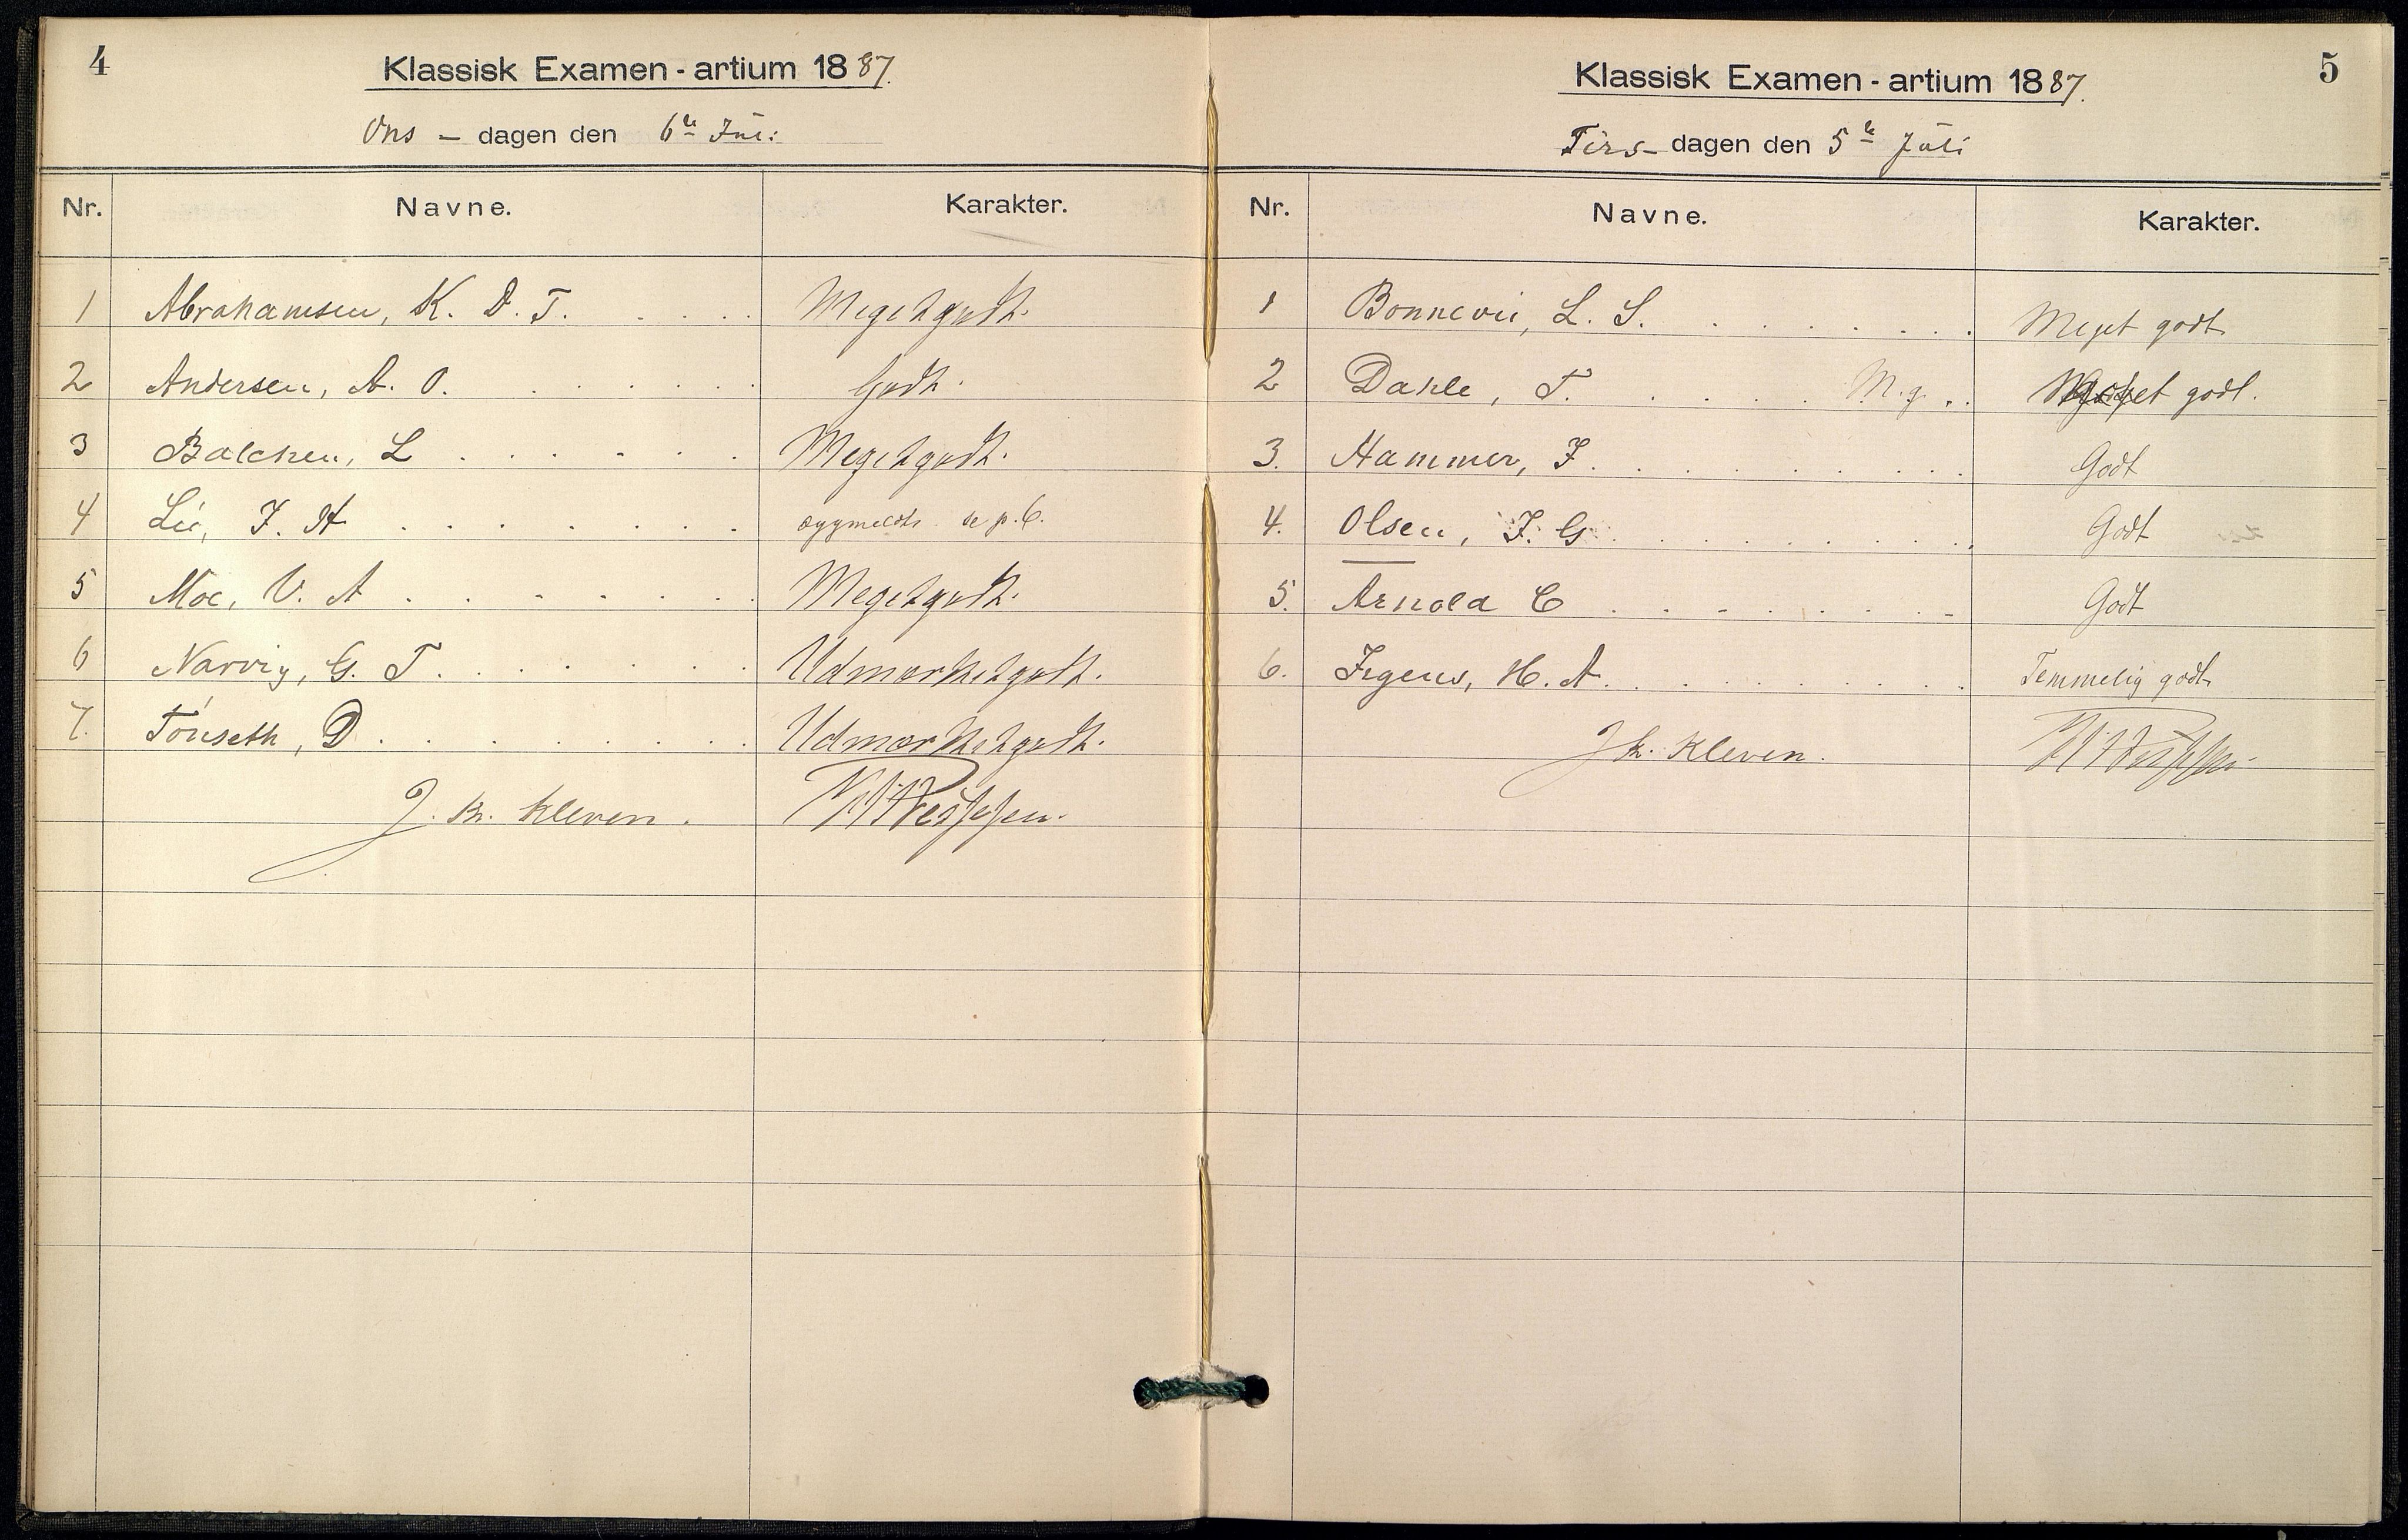 4
Klassisk Examen - artium 1887.
Ons - dagen den 6te Juli
Nr. Navne. Karakter.
1 Abrahamsen, K. D. T. . . . . Megetgodt.
2 Andersen, A. O. . . . . . Godt.
3 Balchen, L . . . . . . Megetgodt.
4 Lie, J. H . . . . . . . sygmeldt se p. 6.
5 Moe, V. A . . . . . . Megetgodt.
6 Narvig, G. T. . . . . . Udmærketgodt.
7. Tönseth, D . . . . . . . Udmærketgodt.
J. Kr. Kleven.
5
Klassisk Examen - artium 1887.
Tirs- dagen den 5te Juli
Nr. Navne. Karakter.
1 Bonnevie, L. S. . . . . . . Meget godt
2 Dahle, T. . . . . M.g. . . Meget godt.
3. Hammer, J. . . . . . . . Godt
4. Olsen, J. G. . . . . . . . Godt
5. Arnold C . . . . . . . . Godt
6. Irgens, H. A. . . . . . . . Temmelig godt
J Kr. Kleven.